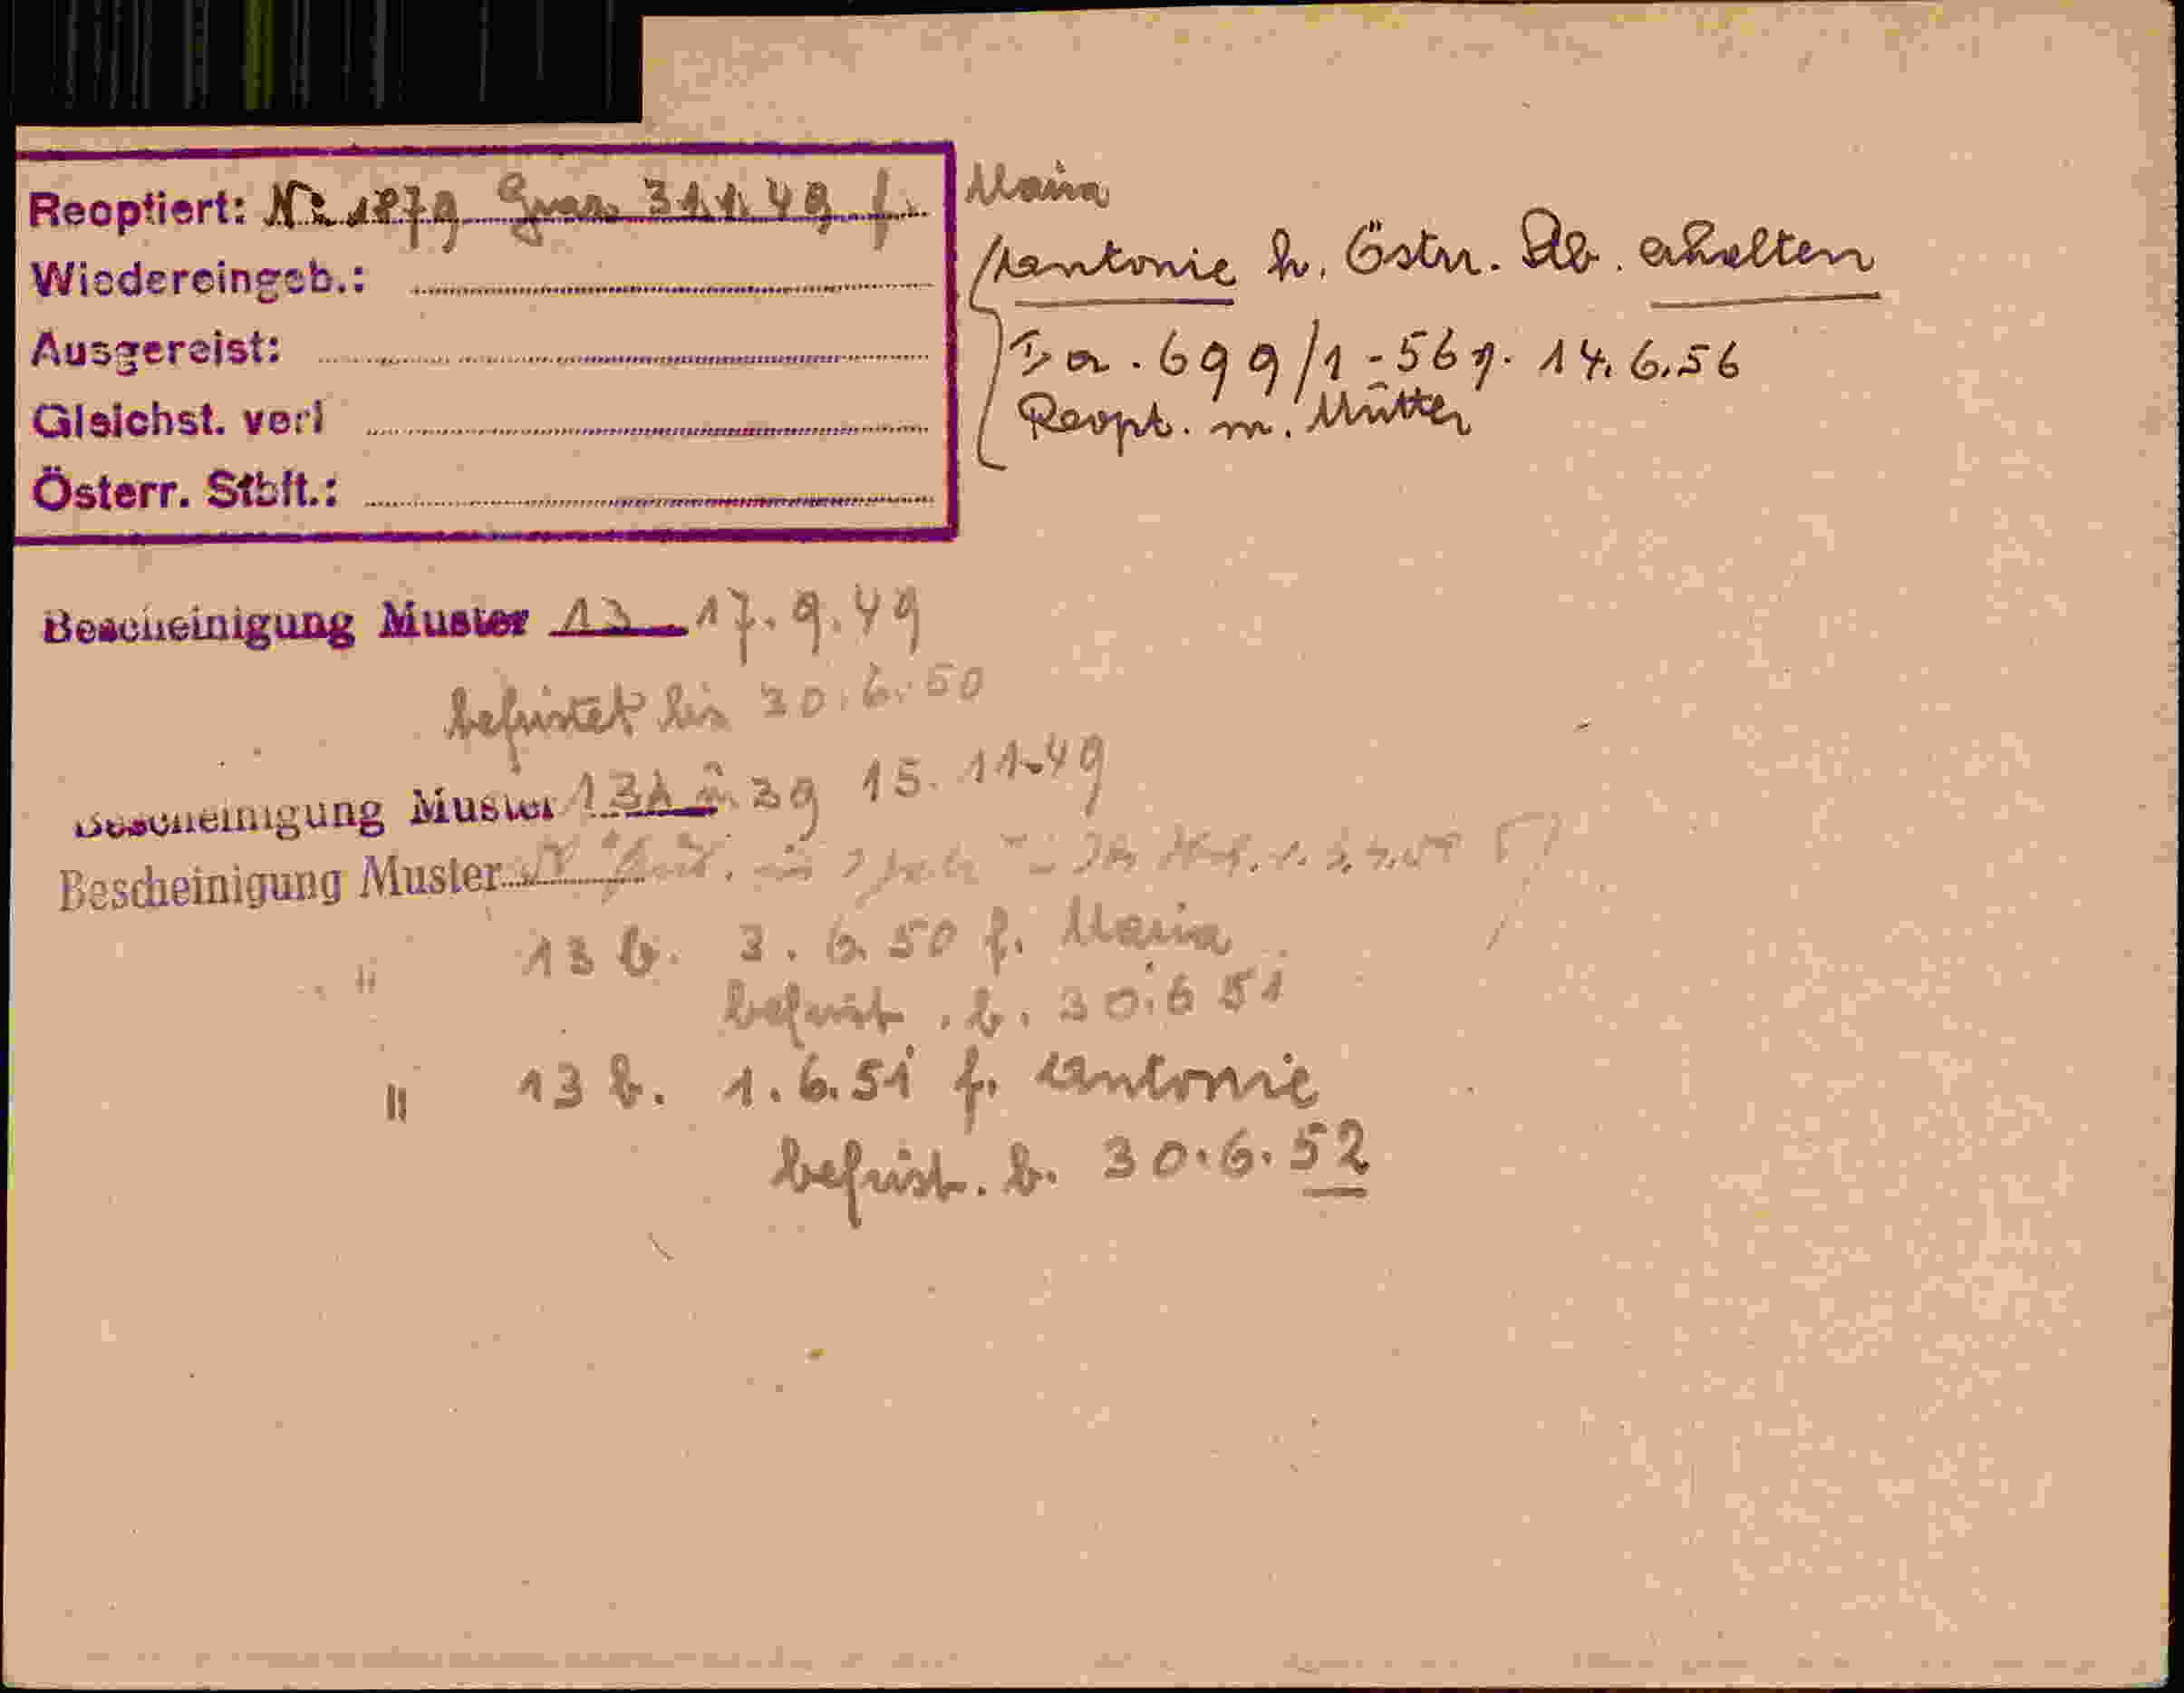 Reoptiert: No 1879 31.1.49 f. Maria
Wiedereingeb.:
Ausgereist:
Gleichst. verl
Österr. Stbft.:
Antonie h. Östrr. Stb. erhalten
Ia. 699/1-56 v. 14.6.56
Reopt. m. Mutter
Bescheinigung Muster 13 17.9.49
befristet bis 30.6.50
Bescheinigung Muster 13A 39 15.11.49
Bescheinigung Muster
" 13 b. 3.6.50 f. Maria
befrist. b. 30.6 51
" 13 b. 1.6.51 f. Antonie
befrist. b. 30.6.52